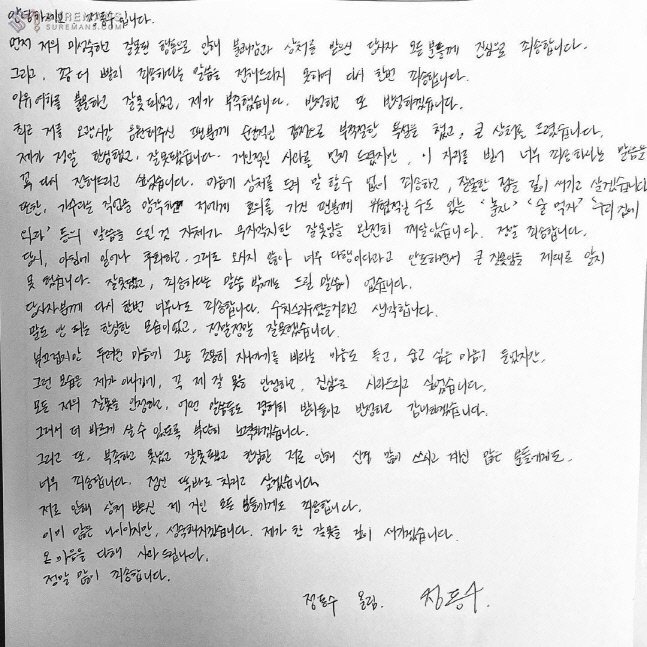 안녕하세요 정동수입니다.
SUREMANS
SUREMANS.COM
먼저 저의 미성숙하고 잘못된 행동으로 인해 불쾌감과 상처를 받으신 당사자 모든 분들께 진심으로 죄송합니다.
그리고, 좀 더 빨리 죄송하다는 말씀을 전해드리지 못하여 다시 한번 죄송합니다.
이유 여하를 불문하고 잘못되었고, 제가 부족했습니다. 반성하고 또 반성하겠습니다.
특히 저를 오랜시간 응원해주신 팬분께 순간적인 감정으로 부적절한 복장을 했고, 큰 상처를 드렸습니다.
제가 정말 한심했고, 잘못했습니다. 개인적인 사과를 먼저 드렸지만, 이 자리를 빌어 너무 죄송하다는 말씀을
꼭 다시 전해드리고 싶었습니다. 마음에 상처를 드려 말할 수 없이 죄송하고, 잘못한 점을 깊이 새기고 살겠습니다.
또한, 가수라는 직업을 망각한 저에게 호의를 가진 팬분께 위협적일 수도 있는 '놀자' '술 먹자' '우리 집에
와라' 등의 말씀을 드린 것 자체가 무지각한 잘못임을 완전히 깨달았습니다. 정말 죄송합니다.
당시, 아침에 일어나 후회하고, 그대로 오시지 않아 너무 다행이다라고 안도하면서 큰 잘못임을 제대로 알지
못 했습니다. 잘못했고, 죄송하다는 말씀 밖에는 드릴 말씀이 없습니다.
당사자분께 다시 한번 너무나도 죄송합니다. 수치스러우셨을거라고 생각합니다.
말도 안 되는 한심한 모습이었고, 정말정말 잘못했습니다.
부끄럽지만 두려운 마음에 그냥 조용히 지나가길 바라는 마음도 들고, 숨고 싶은 마음이 들었지만,
그런 모습은 제가 아니기에, 꼭 제 잘못을 인정하고, 진심으로 사과드리고 싶었습니다.
모든 저의 잘못을 인정하고, 어떤 말씀들도 겸허히 받아들이고 반성하고 감내하겠습니다.
그래서 더 바르게 살 수 있도록 부단히 노력하겠습니다.
그리고 또, 부족하고 못났고 잘못했고 한심한 저로 인해 신경 많이 쓰시고 계신 많은 분들에게도,
너무 죄송합니다. 정신 똑바로 차리고 살겠습니다.
저로 인해 상처 받으신 제 지인 모든 분들에게도 죄송합니다.
이미 많은 나이이지만, 성숙해지겠습니다. 제가 한 잘못을 깊이 새기겠습니다.
온 마음을 다해 사과 드립니다.
정말 많이 죄송합니다.
정동수 올림.